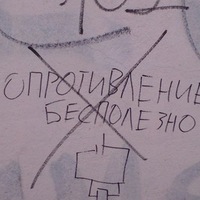 СОПРОТИВЛЕНИЕ
БЕСПОЛЕЗНО